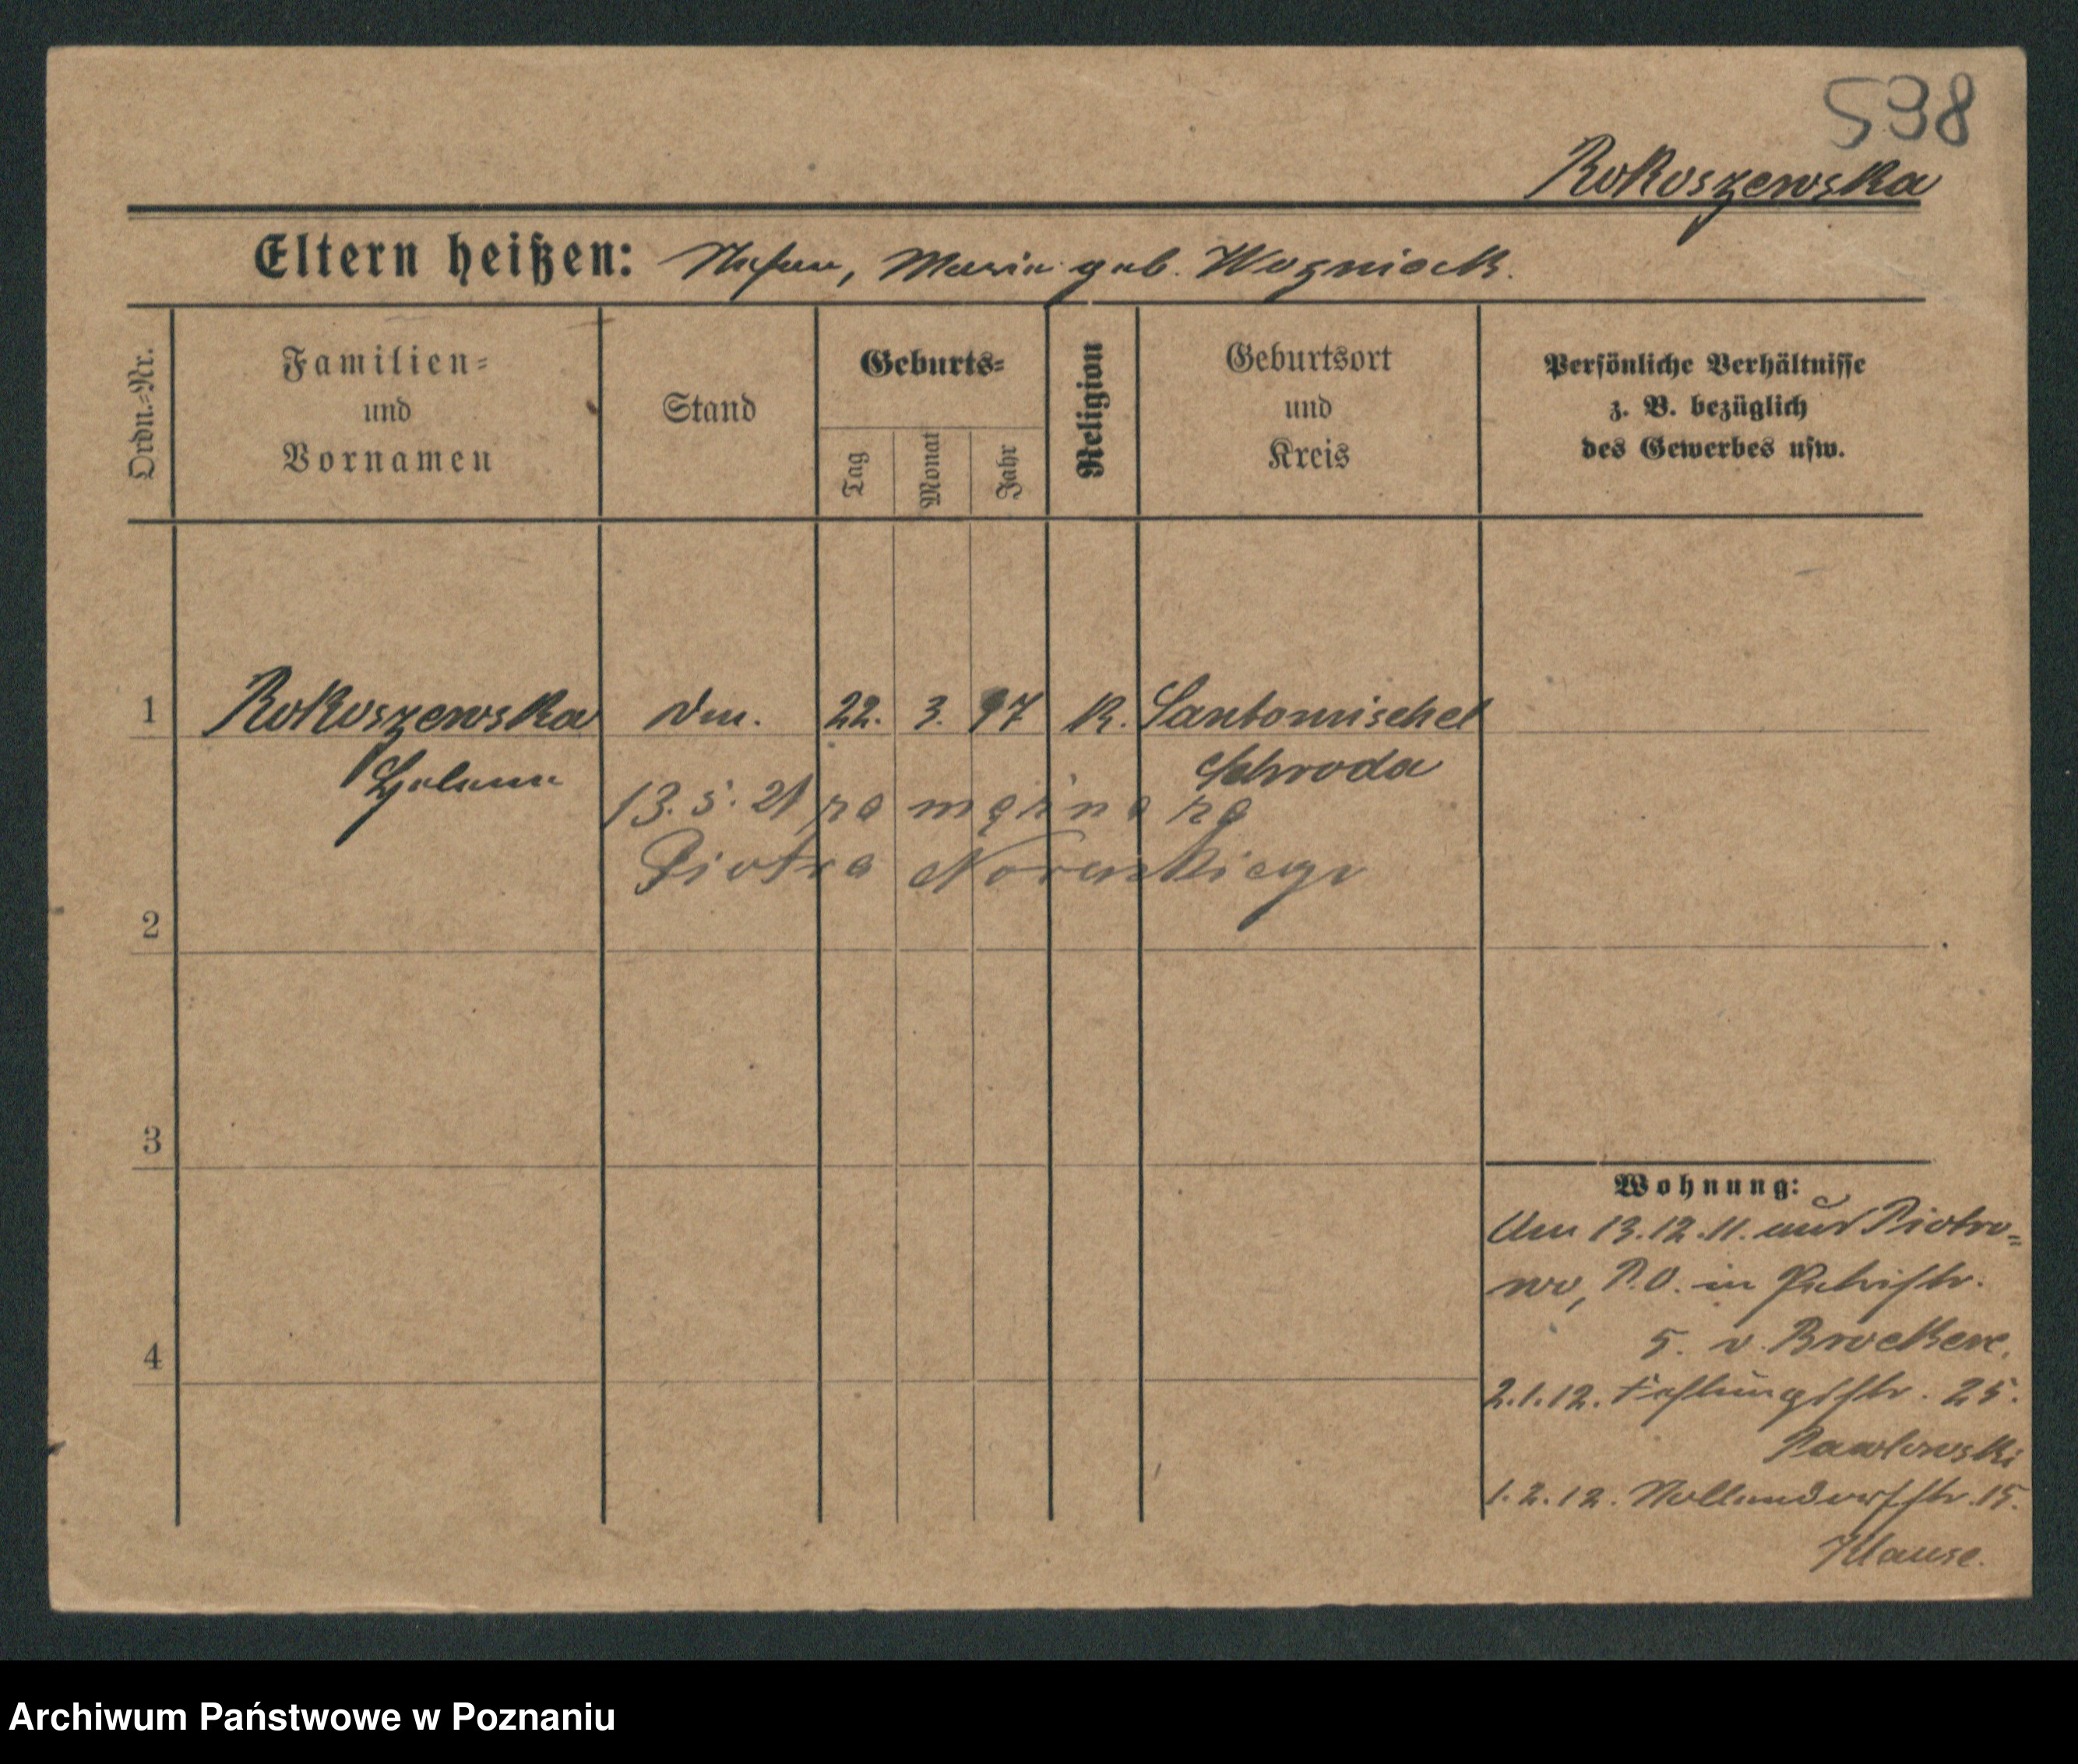 598
Rokoszewska
Eltern heißen: Stefan, Maria geb. Wozniack.
Ordn.-Nr.
Familien-
und
Vornamen
Stand
Geburts-
Tag
Monat
Jahr
Religion
Geburtsort
und
Kreis
Persönliche Verhältnisse
z. B. bezüglich
des Gewerbes usw.
1 Rokoszewska 22. 3. 97 K. Santomischel
Helena Schroda
13. 5. 21 za mężna za
Piotra
2
3
4
Wohnung:
Am 13.12.11. aus Piotro-
wo, P.O. in Petristr.
5. v. Brockere.
2.1.12. Festungsstr. 25.
Pawlowski
1.2.12. Nollendorfstr. 15.
Klause.
Archiwum Państwowe w Poznaniu